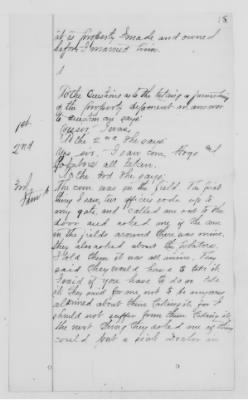 18
it is property I made and owned
before I married him.
To the Questions as to the taking or furnishing
of the property deponent in answer
to question one says:
1st. Yes sir. I was.
2nd To the 2nd She says
Yes sir. I saw corn Hogs and
Potatoes all taken.
3rd To the 3rd She says:
Item 1 The corn was in the field. The first
thing I saw, two officers rode up to
my gate, and called me out to the
door and asked me if the corn
in the fields around there was mine.
they also asked about the potatoes.
I told them it was all mine. They
said they would have to take it
I said if you have to do so take
it. They said for me not to be any ways
alarmed about them taking it for I
should not suffer from them taking it
the next thing they asked me if they
could put a sick in